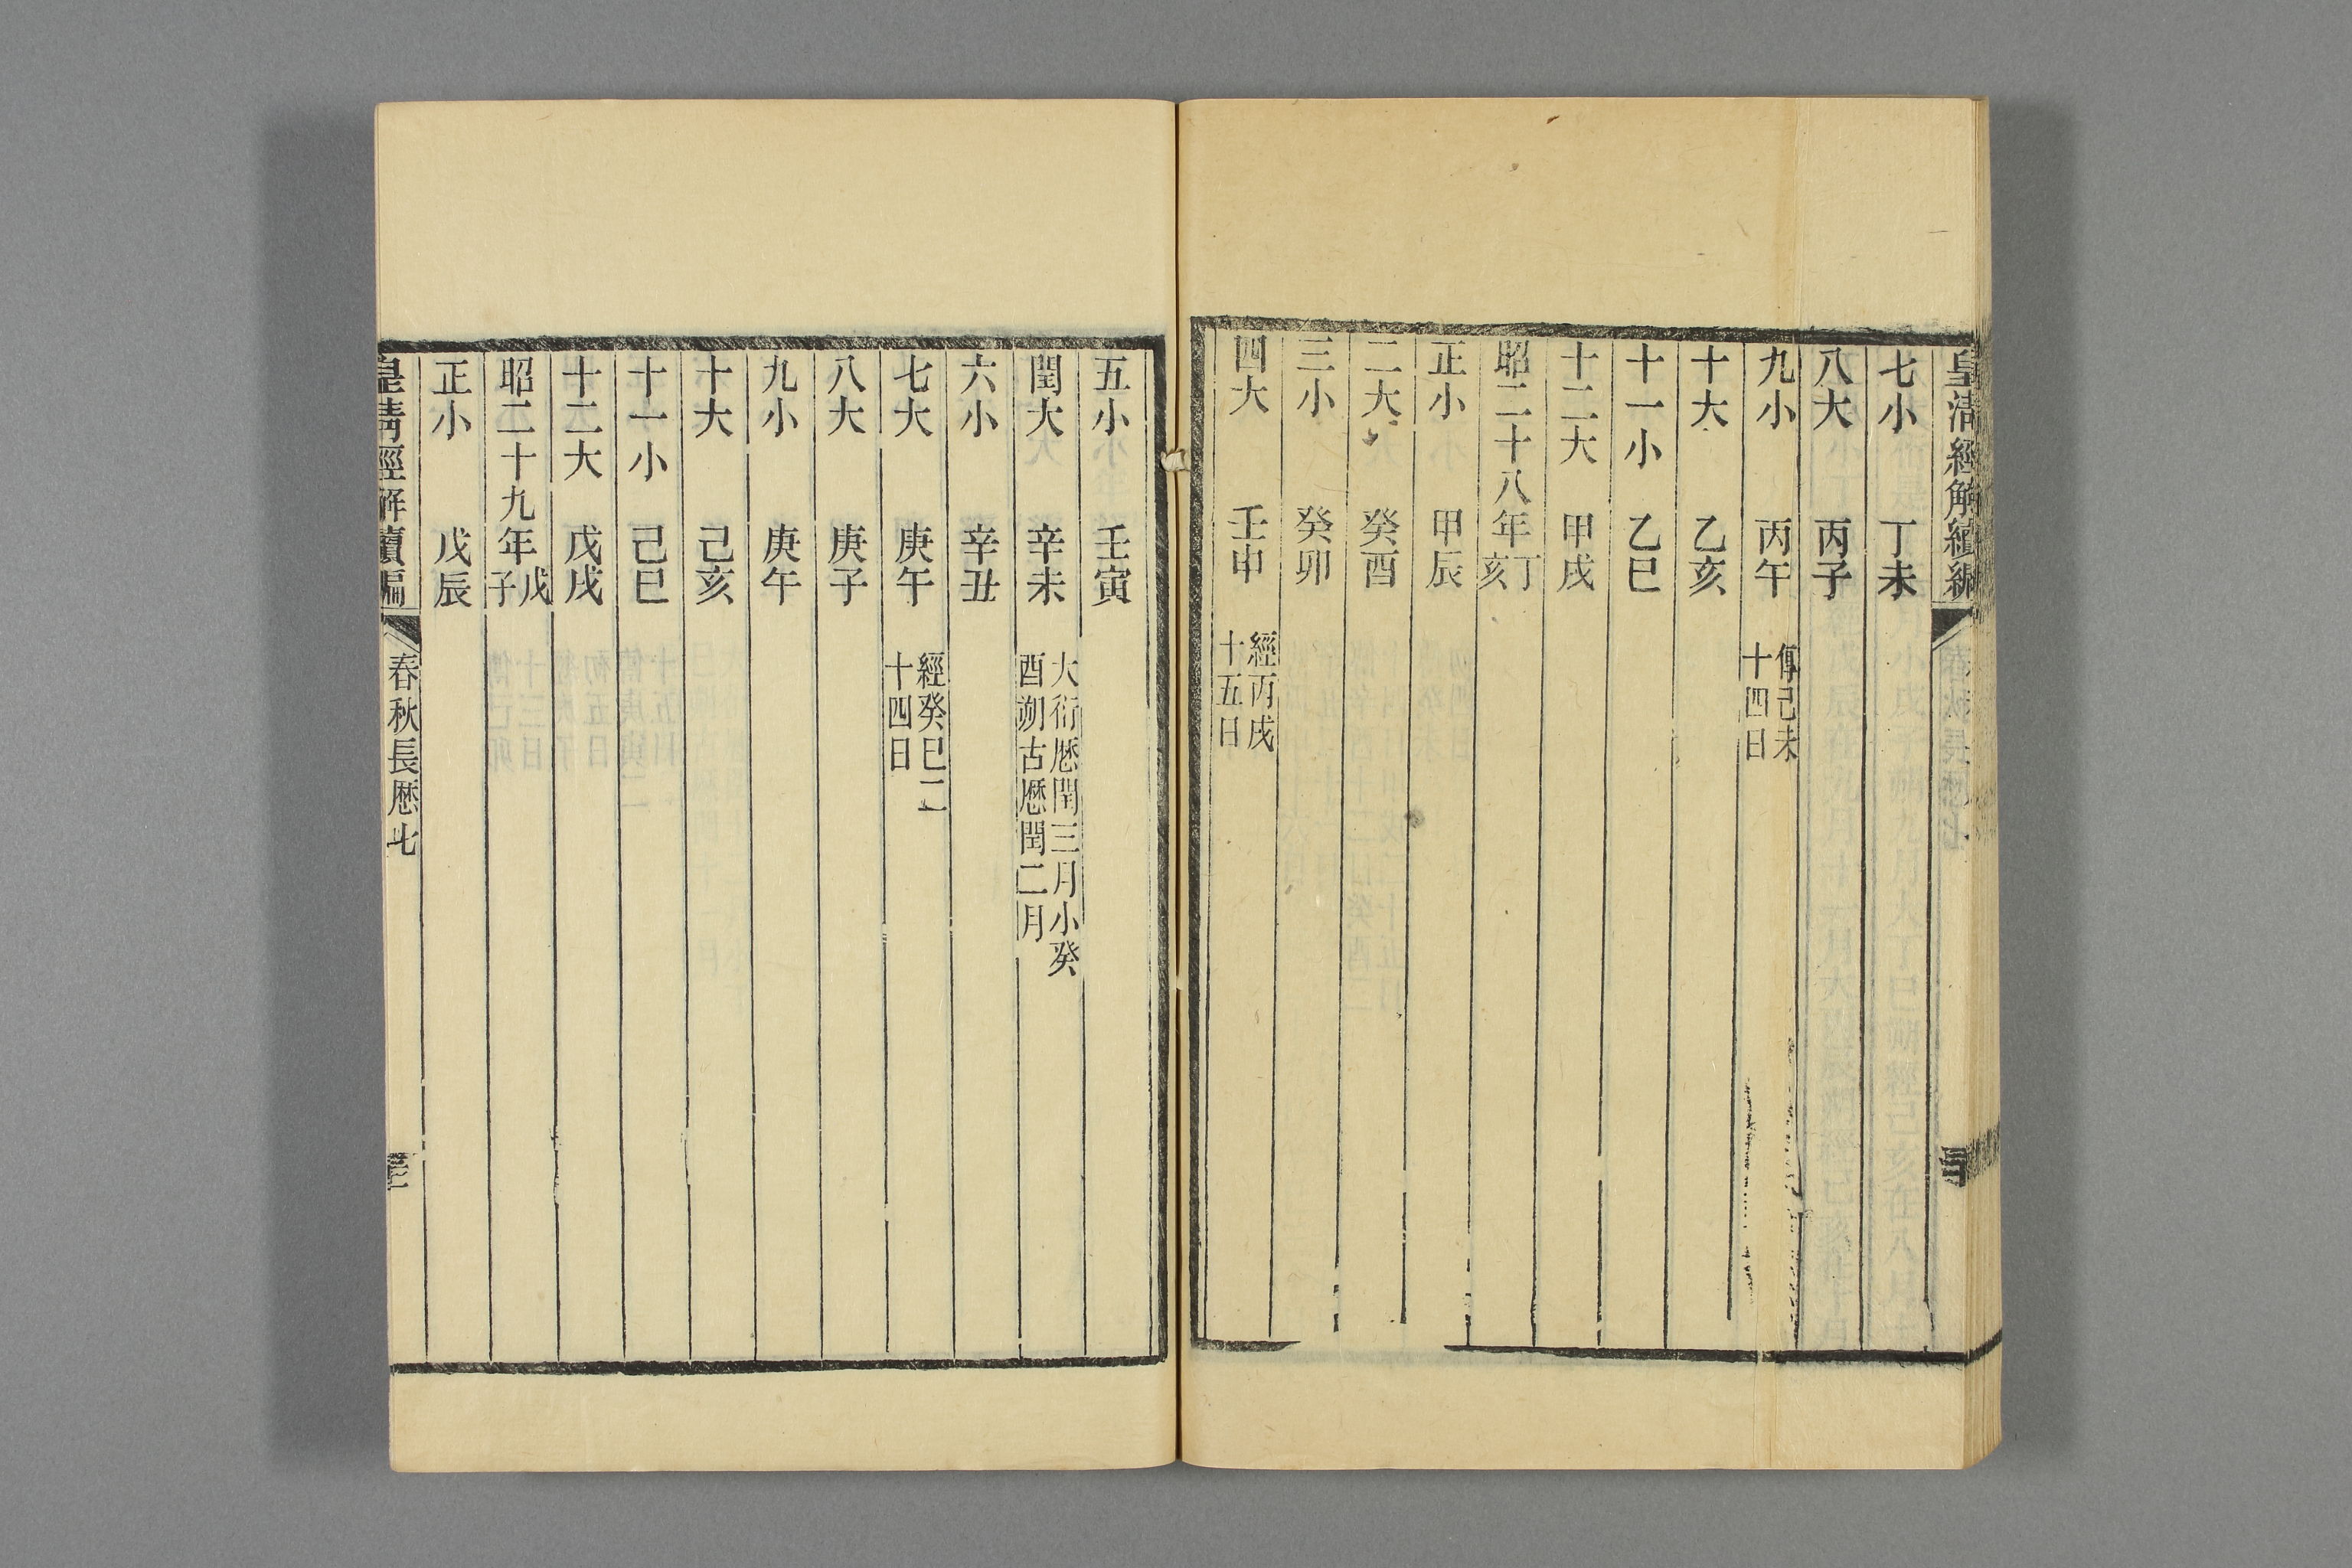 皇清經解續編
七小 丁未
八大 丙子
九小 丙午 傳己未
十四日
十大 乙亥
十一小 乙巳
十二大 甲戌
昭二十八年 丁
亥
正小 甲辰
二大 癸酉
三小 癸卯
四大 壬申 經丙戌
十五日
五小 壬寅
閏大 辛未 大衍厯閏三月小癸
酉朔古厯閏二月
六小 辛丑
七大 庚午 經癸巳二
十四日
八大 庚子
九小 庚午
十大 己亥
十一小 己巳
十二大 戊戌
昭二十九年 戊
子
正小 戊辰
皇清經解續編 春秋長厯七